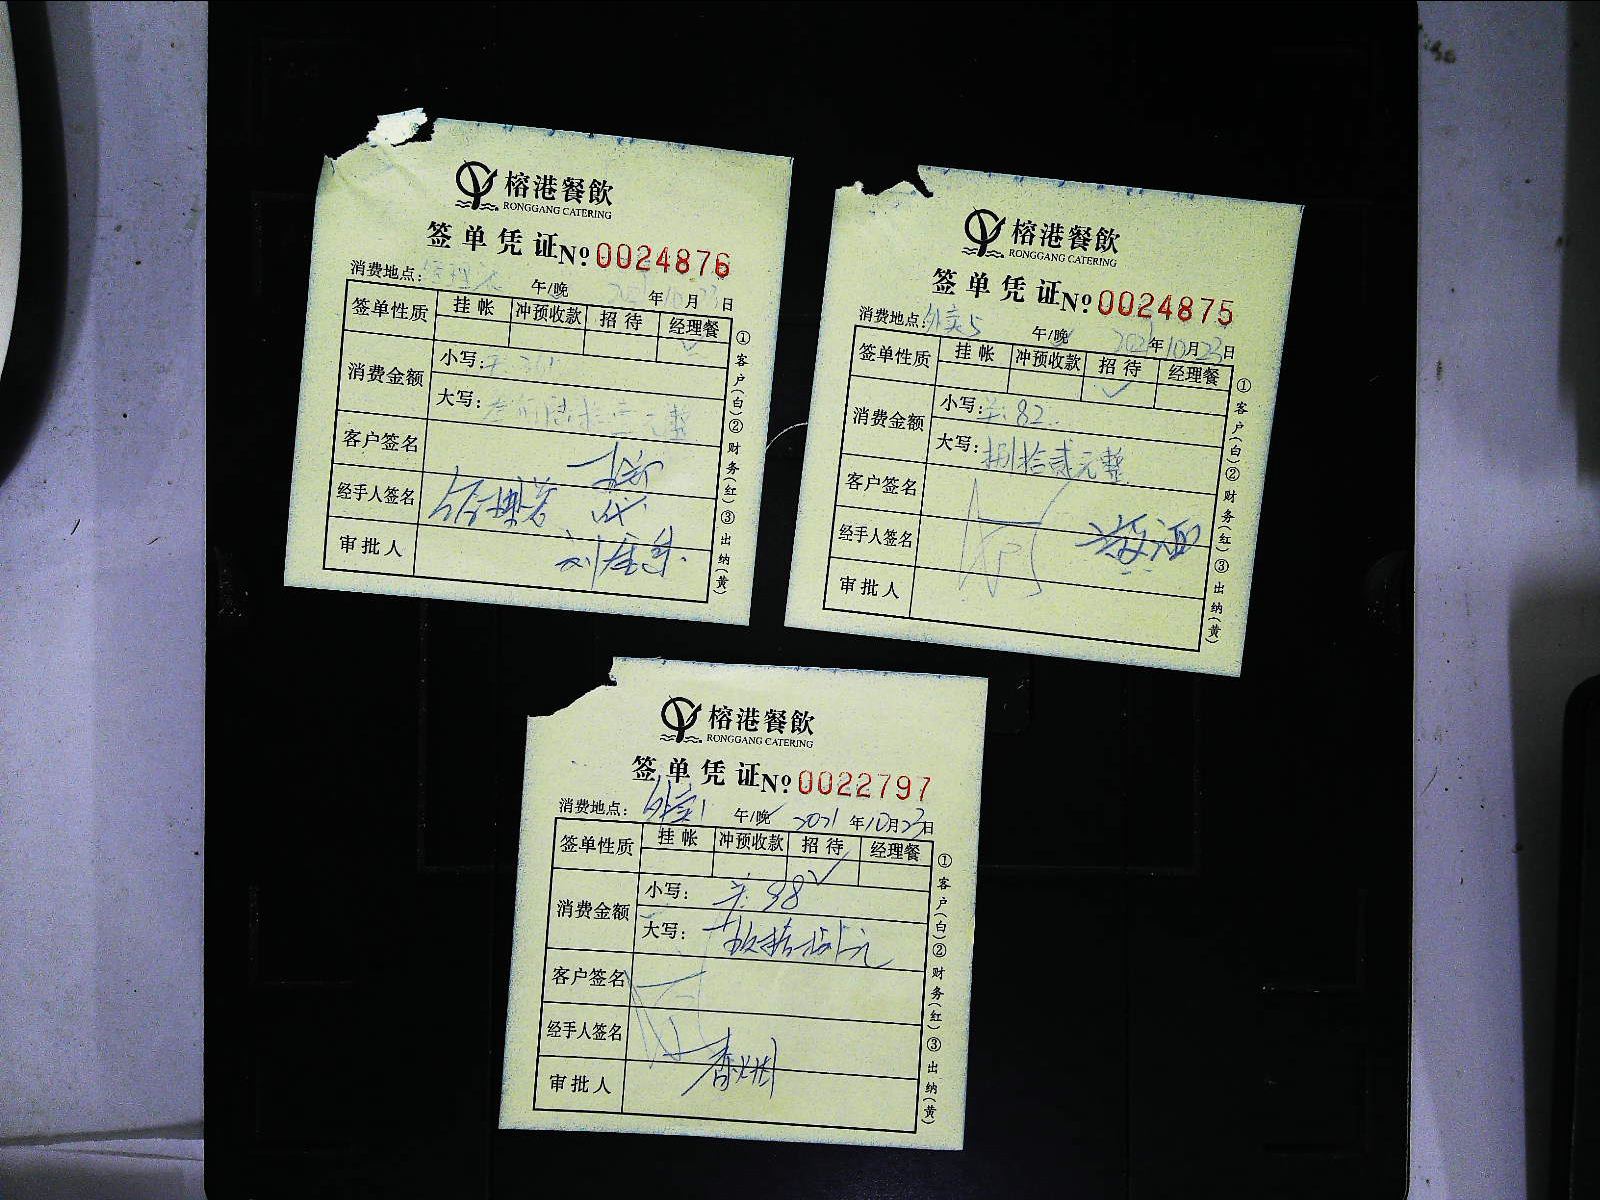 榕港餐飲
RONGGANG CATERING
签单凭证 №: 0024876
消费地点: 午/晚 年10月23日
签单性质 挂帐 冲预收款 招待 经理餐
消费金额 小写:
大写: 元整
客户签名
经手人签名
审批人
①客户(白)②财务(红)③出纳(黄)
榕港餐飲
RONGGANG CATERING
签单凭证 №: 0024875
消费地点: 外卖5 午/晚 2021年10月23日
签单性质 挂帐 冲预收款 招待 经理餐
✓
消费金额 小写: 82
大写: 捌拾贰元整
客户签名
经手人签名
审批人
①客户(白)②财务(红)③出纳(黄)
榕港餐飲
RONGGANG CATERING
签单凭证 №: 0022797
消费地点: 外卖1 午/晚 2021年10月23日
签单性质 挂帐 冲预收款 招待 经理餐
✓
消费金额 小写: 98
大写: 玖拾捌元
客户签名
经手人签名
审批人
①客户(白)②财务(红)③出纳(黄)